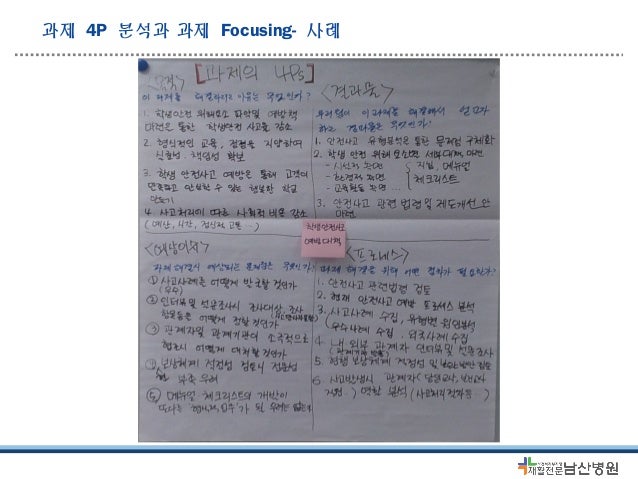 과제 4P 분석과 과제 Focusing- 사례
[과제의 4Ps]
<목적>
이 과제를 해결하려는 이유는 무엇인가?
1. 학생안전 위해요소 파악및 예방책
마련을 통한 학생안전 사고를 감소
2. 형식적인 교육, 점검을 지양하여
신뢰성, 책임성 확보
3. 학생 안전사고 예방을 통해 고객이
만족하고 안심할 수 있는 행복한 학교
만들기
4. 사고처리에 따른 사회적 비용 감소
(예산, 시간, 정신적 고통 …)
<결과물>
우리팀이 이과제를 해결해서 얻고자
하는 결과물은 무엇인가?
1. 안전사고 유형분석을 통한 문제점 구체화
2. 학생 안전 위해요소별 세부대책 마련
- 시설적 측면
- 환경적 측면
- 교육활동 측면 …
지침, 매뉴얼
체크리스트
3. 안전사고 관련 법령및 제도개선 안
마련
학생안전사고
예방대책
<예상이슈>
과제해결시 예상되는 문제점은 무엇인가?
① 사고사례는 어떻게 발굴할 것인가
(우수)
② 인터뷰및 설문조사시 조사대상, 조사
항목등은 어떻게 정할것인가
③ 관계자및 관계기관의 소극적으로
협조시 어떻게 대처할것인가
④ 보상체계 적정성 검토시 전문성
부족 우려
⑤ 매뉴얼 체크리스트의 개발이
또다른
<프로세스>
과제 해결을 위해 어떤 절차가 필요한가?
1. 안전사고 관련법령 검토
2. 현재 안전사고 예방 프로세스 분석
3. 사고사례 수집, 유형별 원인분석
(우수사례 수집, 외국사례 수집)
4. 내·외부 관계자 인터뷰및 설문조사
5. 현행 보상체계 적정성 및
6. 사고발생시 관계자(담임교사, 보건교사
역할 분석 (사고처리절차등…)
재활전문남산병원